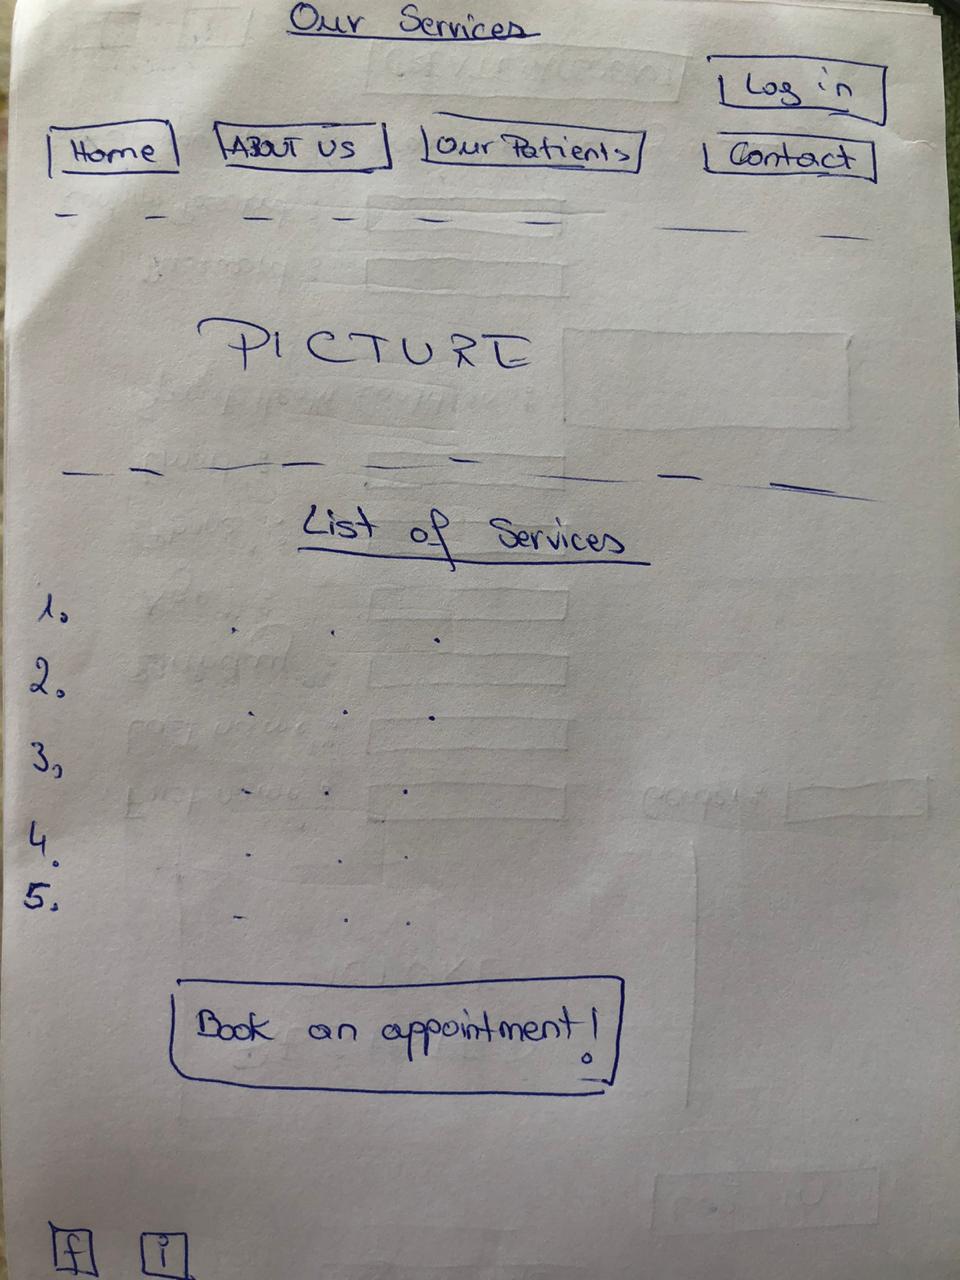 Our Services
Log in
Home ABOUT US Our Patients Contact
PICTURE
List of Services
1.
2.
3.
4.
5.
Book an appointment!
f i